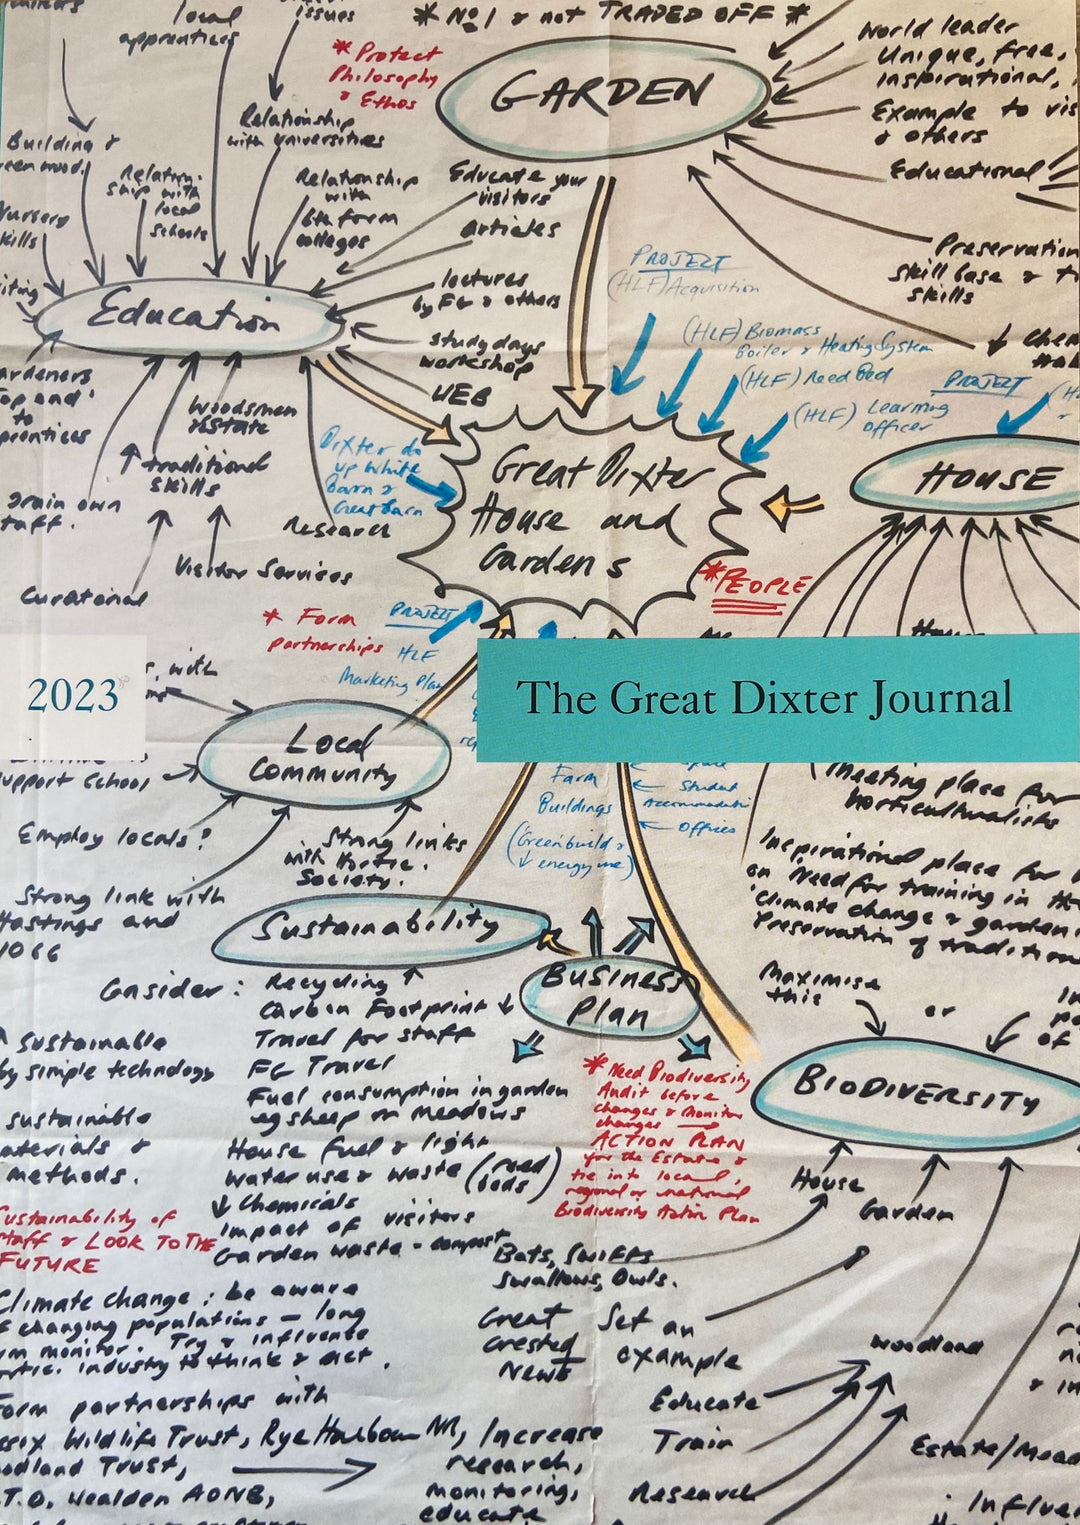 local
apprentices
issues
* No1 & not TRADED OFF *
* Protect
Philosophy
& Ethos
GARDEN
World leader
Unique, free,
inspirational,
Example to
& others
Educational
Preservation
skill base &
skills
Building &
Relation-
ship with
local
schools
Relationship
with universities
Relationship
with
6th form
colleges
Educate your
visitors
articles
lectures
by FG & others
study days
workshop
WEB
Nursery
skills
Education
to
Woodsmen
& estate
↑ traditional
skills
train own
staff.
Research
Visitor Services
Curatorial
PROJECT
(HLF) Acquisition
(HLF) Biomass
Boiler & Heating System
(HLF) Reed Bed
(HLF) Learning
Officer
PROJECT
Dixter do
up White
barn &
Great barn
Great Dixter
House and
Gardens
HOUSE
* PEOPLE
* Form
partnerships
PROJECT
HLF
Marketing Plan
2023
The Great Dixter Journal
with
Local
Community
support school
Employ locals?
Strong links
with Hortic.
Society.
Strong link with
Hastings and
1066
Farm
Buildings
(Greenbuild &
↓ energy use)
Student
Accommodation
Offices
(Meeting place for
horticulturalists
Inspirational place for
on Need for training in
'Climate change & garden
Preservation of tradition
Maximise
this
or
of
Sustainability
Business
Plan
BIODIVERSITY
Consider: Recycling
Carbon Footprint ↓
Travel for staff
FG Travel
Fuel consumption in garden
eg sheep on meadows
House Fuel & light
Water use & waste (reed
beds)
↓ Chemicals
Impact of visitors
Garden waste - compost
sustainable
by simple technology
sustainable
materials &
methods.
Sustainability of
staff & LOOK TO THE
FUTURE
* Need Biodiversity
Audit before
changes & Monitor
changes
ACTION PLAN
for the Estate &
tie into local,
regional or national
Biodiversity Action Plan
House
Garden
Bats, Swifts
Swallows, Owls.
Great
Crested
Newts
Set an
example
Woodland
Educate
Train
Research
Estate/Mead
Influen
Climate change: be aware
of changing populations - long
term monitor. Try & influence
hortic. industry to think & act.
Form partnerships with
Sussex Wildlife Trust, Rye Harbour NR,
Woodland Trust,
B.T.O, Wealden AONB,
Increase
research,
monitoring,
educate